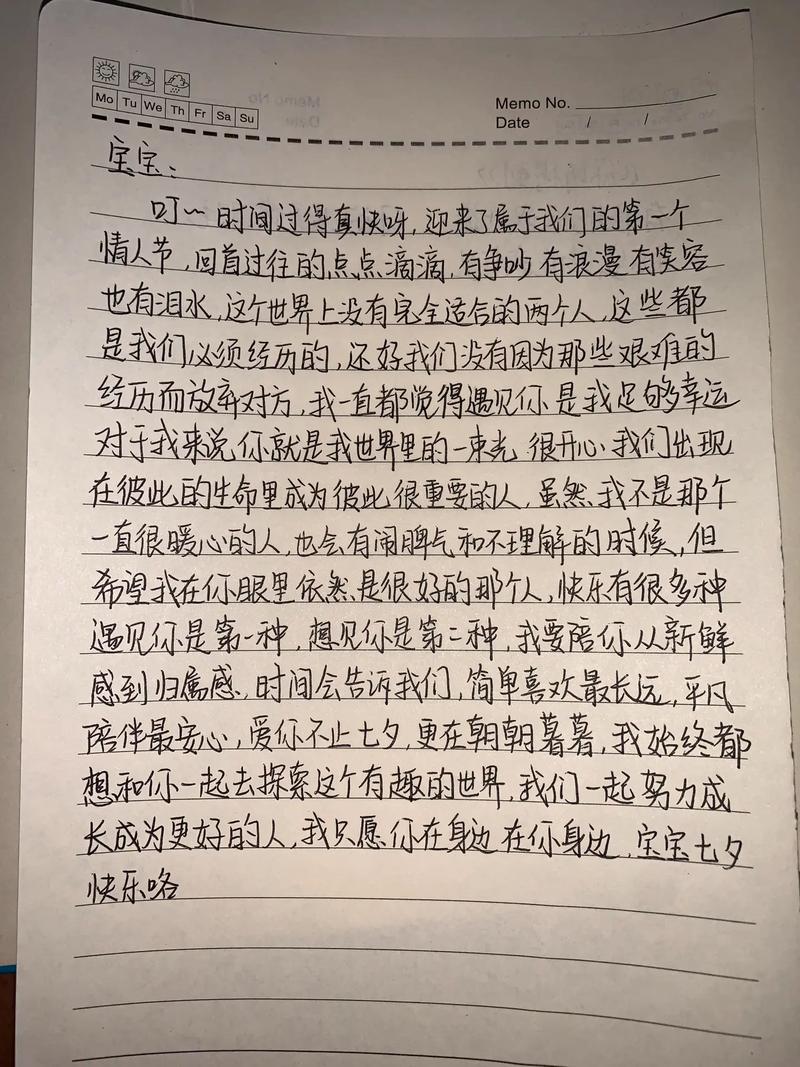 Mo Tu We Th Fr Sa Su
Memo No.
Date / /
宝宝：
叮~ 时间过得真快呀，迎来了属于我们的第一个
情人节，回首过往的点点滴滴，有争吵 有浪漫 有笑容
也有泪水，这个世界上没有完全适合的两个人，这些都
是我们必须经历的，还好我们没有因为那些艰难的
经历而放弃对方，我一直都觉得遇见你是我足够幸运
对于我来说，你就是我世界里的一束光 很开心 我们出现
在彼此的生命里成为彼此很重要的人，虽然、我不是那个
一直很暖心的人，也会有闹脾气和不理解的时候，但
希望我在你眼里依然是很好的那个人，快乐有很多种
遇见你是第一种，想见你是第二种，我要陪你从新鲜
感到归属感，时间会告诉我们，简单喜欢最长远，平凡
陪伴最安心，爱你不止七夕，更在朝朝暮暮，我始终都
想和你一起去探索这个有趣的世界，我们一起努力成
长成为更好的人，我只愿你在身边 在你身边，宝宝七夕
快乐咯